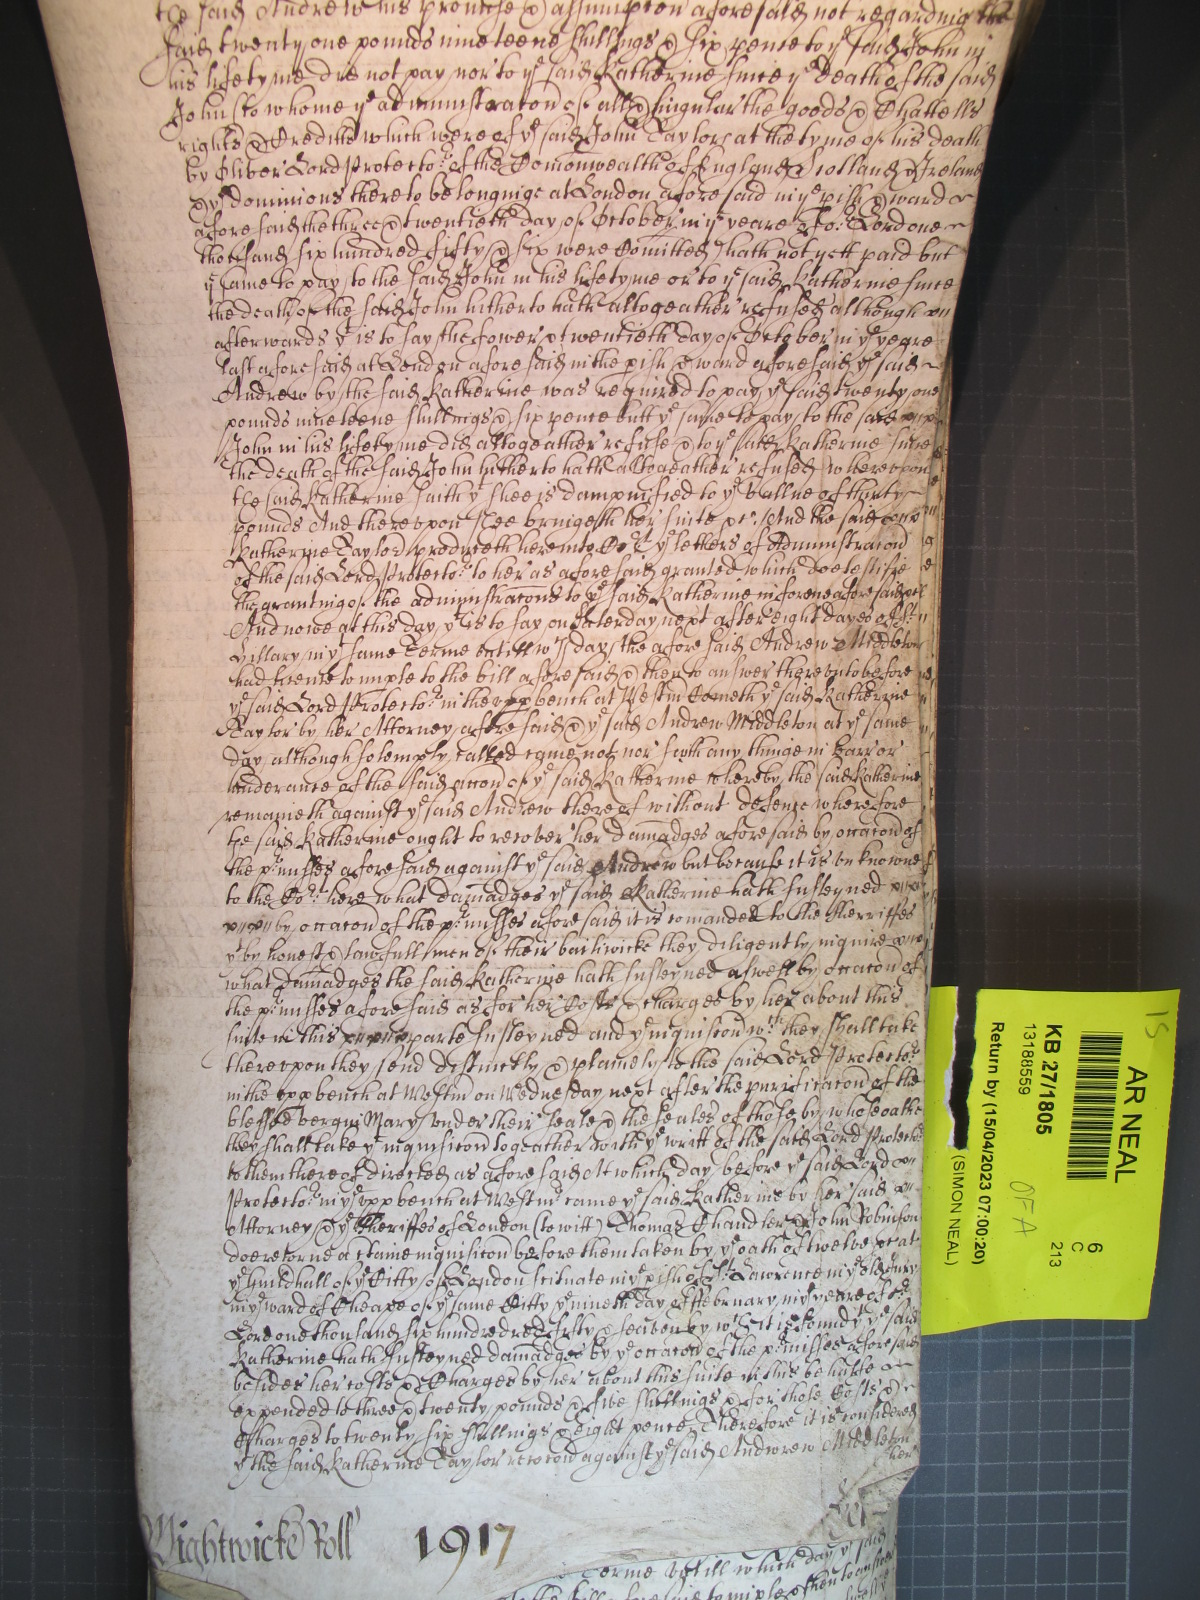 the said Andrew his promise & assumpcon aforesaid not regarding the
said twenty one pounds nineteene shillings & six pence to ye said John in
his lifetyme did not pay nor to ye said Katherine since ye death of the said
John (to whome ye administracon of all & singular the goods & Chattells
rights & Creditts which were of ye said John Taylor at the tyme of his death
by Oliver Lord Protector of the Comonwealth of England Scotland & Ireland
& ye dominions thereto belonginge at London aforesaid in ye pish & ward
aforesaid the three & twentieth day of October in ye yeare of or Lord one
thousand six hundred fifty & six were Comitted) hath not yett paid but
ye same to pay to the said John in his lifetyme or to ye said Katherine since
the death of the said John hitherto hath altogeather refused although
afterwards yt is to say the fower & twentieth day of October in ye yeare
last aforesaid at London aforesaid in the pish & ward aforesaid ye said
Andrew by the said Katherine was required to pay ye said twenty one
pounds nineteene shillings & six pence butt ye same to pay to the said
John in his lifetyme did altogeather refuse & to ye said Katherine since
the death of the said John hitherto hath altogeather refused whereupon
the said Katherine saith yt shee is dampnified to ye vallue of thirty
pounds And thereupon shee bringeth her suite &c. And the said
Katherine Taylor produceth here into Cort ye letters of Administracon
of the said Lord Protector to her as aforesaid granted which doe testifie
the granting of the administracons to ye said Katherine in forme aforesaid &c
And nowe at this day yt is to say on Saterday next after eight dayes of St
Hillary in ye same Terme untill wch day the aforesaid Andrew Middleton
had licence to imple to the bill aforesaid & then to answer thereunto before
ye said Lord Protector in the upp bench at Westm Cometh ye said Katherine
Taylor by her Attorney aforesaid & ye said Andrew Middleton at ye same
day although solemply called came not nor saith any thinge in barr or
hinderance of the said accon of ye said Katherine whereby the said Katherine
remaineth against ye said Andrew thereof without defence wherefore
the said Katherine ought to recover her damadges aforesaid by occacon of
the pmisses aforesaid against ye said Andrew but because it is unknowne
to the Cort here what damadges ye said Katherine hath susteyned
by occacon of the pmisses aforesaid it is comanded to the Sherriffes
yt by honest & lawfull men of their bailiwicke they diligently inquire
what damadges the said Katherine hath susteyned aswell by occacon of
the pmisses aforesaid as for her Costs & charges by her about this
suite in this parte susteyned and ye inquisicon wch they shall take
thereupon they send distinctly & plainely to the said Lord Protector
in the upp bench at Westm on Wednesday next after the purificacon of the
blessed vergin Mary under their seale & the seales of those by whose oathe
they shall take ye inquisicon togeather with ye writt of the said Lord Protector
to them thereof directed as aforesaid At which day before ye said Lord
Protector in ye upp bench at Westm came ye said Katherine by her said
Attorney & ye Sheriffes of London (to witt) Thomas Chandler & John Robinson
doe retorne a ctaine inquisicon before them taken by ye oath of twelve &c at
ye Guildhall of ye Citty of London scituate in ye pish of St Lawrence in ye old Jury
in ye ward of Cheape of ye same Citty ye nineth day of February in ye yeare of or
Lord one thousand six hundred fifty & seaven by wch it is found yt ye said
Katherine hath susteyned damadges by ye occacon of the pmisses aforesaid
besides her costs & Charges by her about this suite in this behalfe
expended to three & twenty pounds & five shillings & for those Costs &
Charges to twenty six shillings & eight pence Therefore it is considered
yt the said Katherine Taylor recover against ye said Andrew Middleton
her
Wightwicke Roll 1917
Terme untill which day ye said
15
AR NEAL
KB 27/1805
13188559
Return by (15/04/2023 07:00:20)
(SIMON NEAL)
OFA
6
C
213